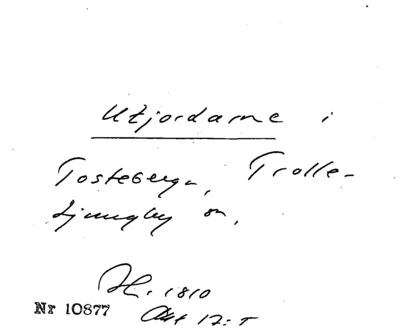 Utjordarne i
Tosteberga, Trolle-
Ljungby sn,
H. 1810
Nr 10877
Akt 17: T